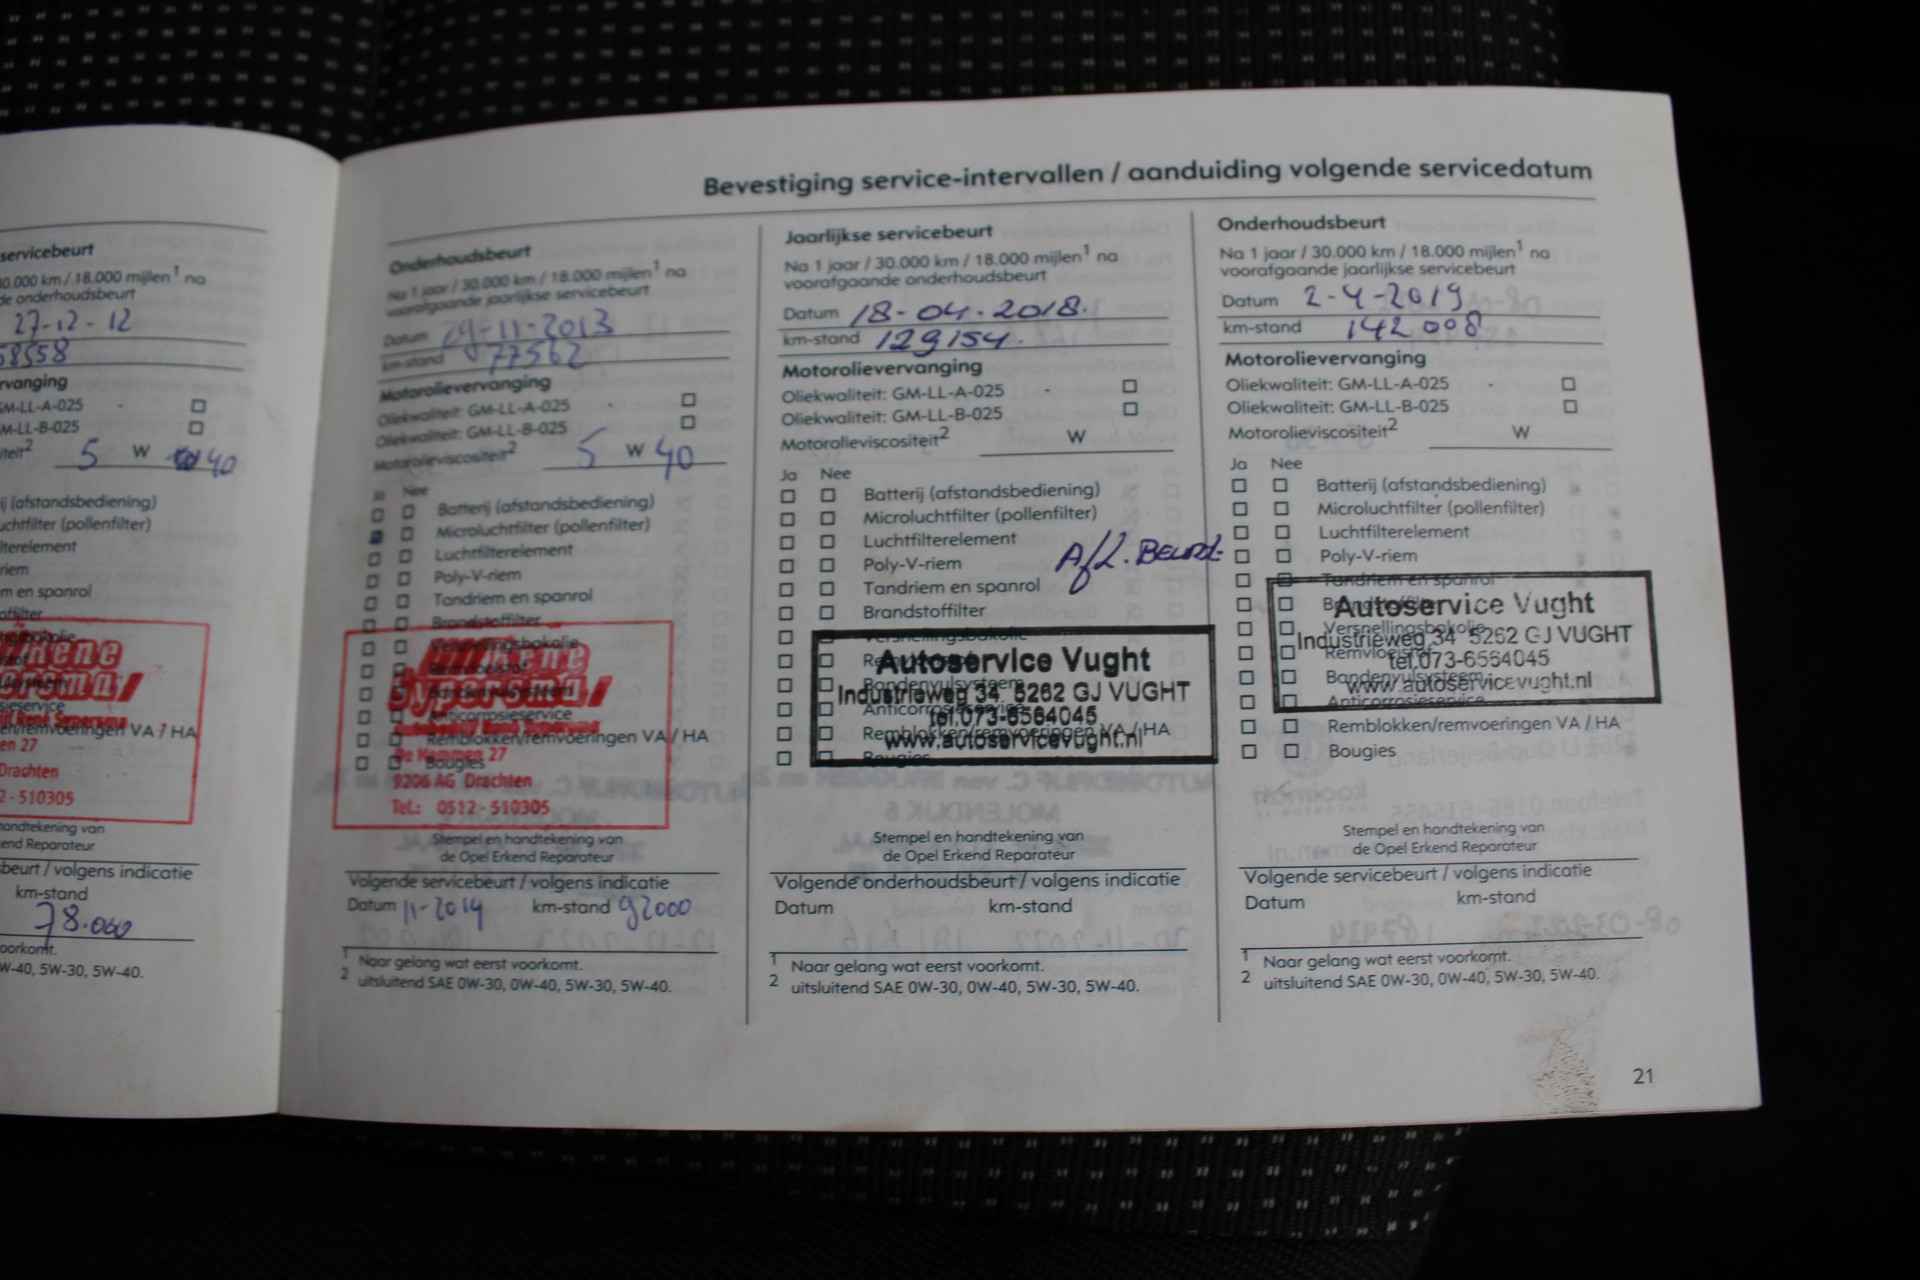 Bevestiging service-intervallen / aanduiding volgende servicedatum
servicebeurt
0.000 km / 18.000 mijlen¹ na
de onderhoudsbeurt
27-12-12
58558
rvanging
GM-LL-A-025
M-LL-B-025
iteit²
5 W 40
ij (afstandsbediening)
uchtfilter (pollenfilter)
lterelement
riem
m en spanrol
René
Sypersma
en/remvoeringen VA / HA
en 27
Drachten
2-510305
andtekening van
end Reparateur
beurt / volgens indicatie
km-stand
78.000
oorkomt.
W-40, 5W-30, 5W-40.
Onderhoudsbeurt
Na 1 jaar / 30.000 km / 18.000 mijlen¹ na
voorafgaande jaarlijkse servicebeurt
Datum 29-11-2013
km-stand 77562
Motorolievervanging
Oliekwaliteit: GM-LL-A-025
Oliekwaliteit: GM-LL-B-025
Motorolieviscositeit² 5 W 40
Ja Nee
Batterij (afstandsbediening)
Microluchtfilter (pollenfilter)
Luchtfilterelement
Poly-V-riem
Tandriem en spanrol
Brandstoffilter
Versnellingsbakolie
René
Sypersma
Bandenvulsysteem
Anticorrosieservice
Remblokken/remvoeringen VA / HA
De Kemmen 27
Bougies
9206 AG Drachten
Tel.: 0512-510305
Stempel en handtekening van
de Opel Erkend Reparateur
Volgende servicebeurt / volgens indicatie
Datum 11-2014 km-stand 92000
1 Naar gelang wat eerst voorkomt.
2 uitsluitend SAE 0W-30, 0W-40, 5W-30, 5W-40.
Jaarlijkse servicebeurt
Na 1 jaar / 30.000 km / 18.000 mijlen¹ na
voorafgaande onderhoudsbeurt
Datum 18-04-2018.
km-stand 129154.
Motorolievervanging
Oliekwaliteit: GM-LL-A-025
Oliekwaliteit: GM-LL-B-025
Motorolieviscositeit² W
Ja Nee
Batterij (afstandsbediening)
Microluchtfilter (pollenfilter)
Luchtfilterelement
Afl. Beurt.
Poly-V-riem
Tandriem en spanrol
Brandstoffilter
Versnellingsbakolie
Autoservice Vught
Bandenvulsysteem
Industrieweg 34 5262 GJ VUGHT
Anticorrosieservice
tel.073-6564045
Remblokken/remvoeringen VA / HA
www.autoservicevught.nl
Bougies
Stempel en handtekening van
de Opel Erkend Reparateur
Volgende onderhoudsbeurt / volgens indicatie
Datum km-stand
1 Naar gelang wat eerst voorkomt.
2 uitsluitend SAE 0W-30, 0W-40, 5W-30, 5W-40.
Onderhoudsbeurt
Na 1 jaar / 30.000 km / 18.000 mijlen¹ na
voorafgaande jaarlijkse servicebeurt
Datum 2-4-2019
km-stand 142008
Motorolievervanging
Oliekwaliteit: GM-LL-A-025
Oliekwaliteit: GM-LL-B-025
Motorolieviscositeit² W
Ja Nee
Batterij (afstandsbediening)
Microluchtfilter (pollenfilter)
Luchtfilterelement
Poly-V-riem
Tandriem en spanrol
Autoservice Vught
Versnellingsbakolie
Industrieweg 34 5262 GJ VUGHT
Remvloeistof
tel.073-6564045
Bandenvulsysteem
www.autoservicevught.nl
Anticorrosieservice
Remblokken/remvoeringen VA / HA
Bougies
Stempel en handtekening van
de Opel Erkend Reparateur
Volgende servicebeurt / volgens indicatie
Datum km-stand
1 Naar gelang wat eerst voorkomt.
2 uitsluitend SAE 0W-30, 0W-40, 5W-30, 5W-40.
21